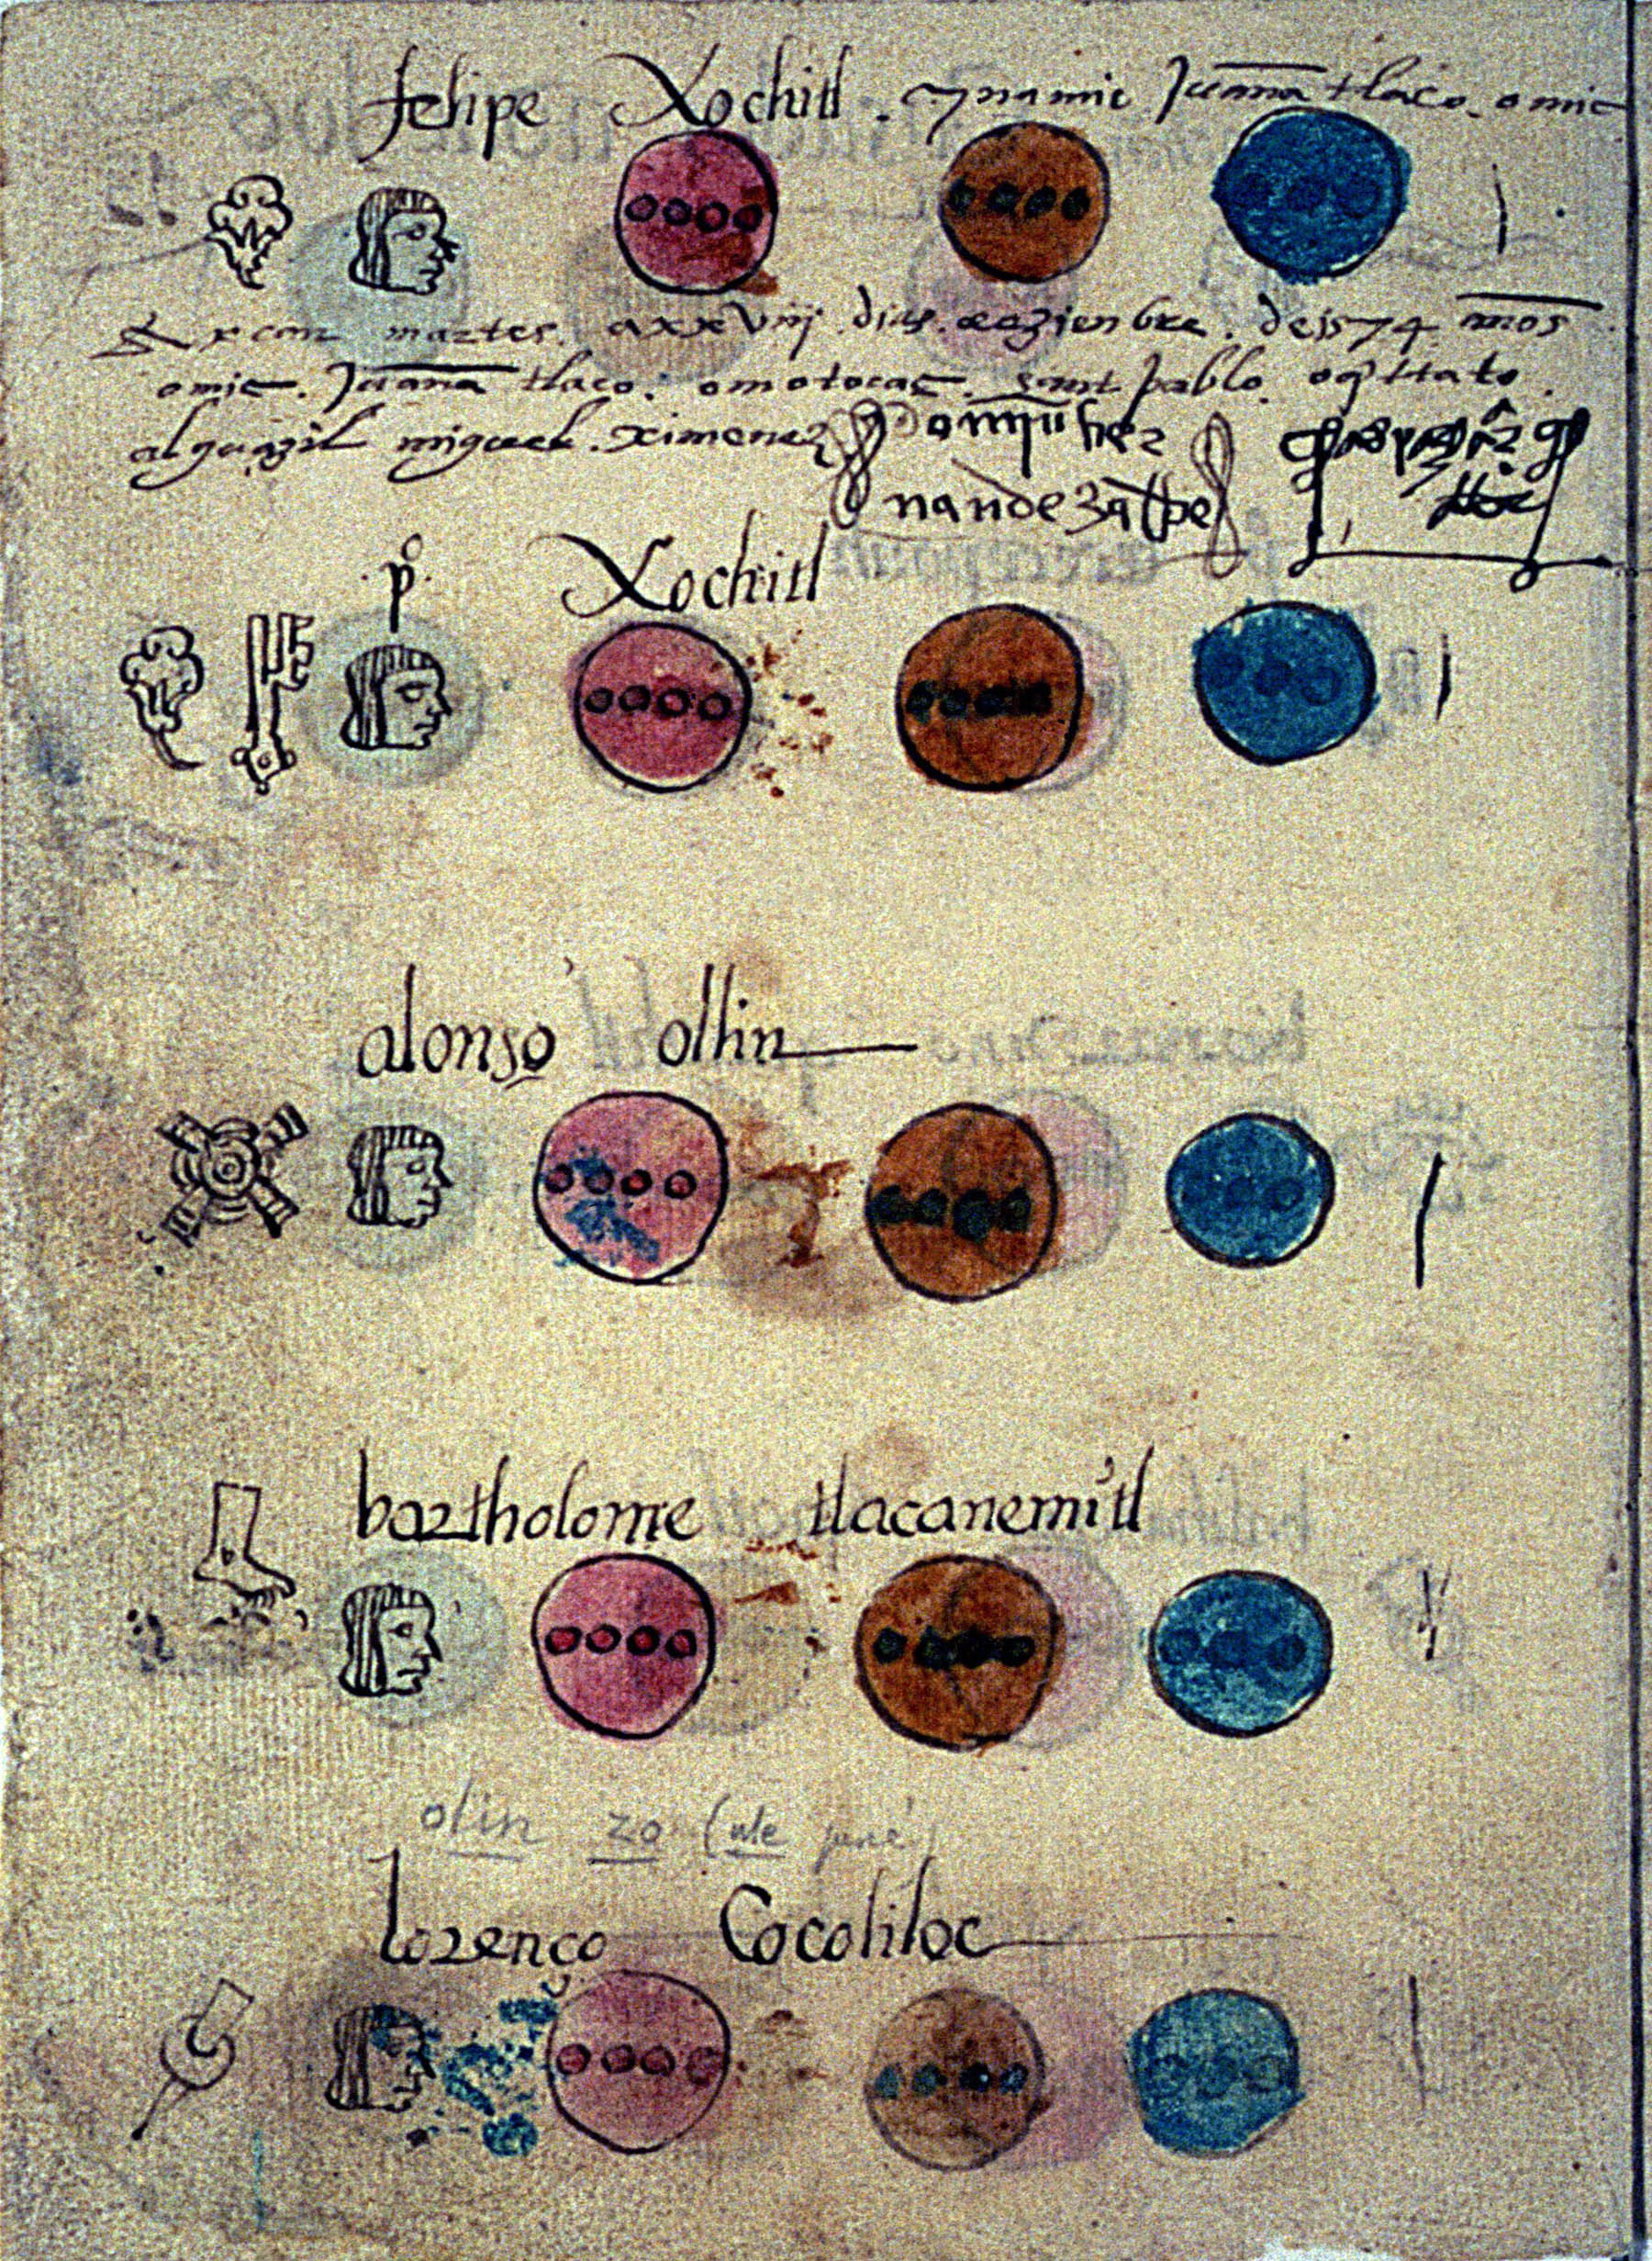 felipe Xochitl . ynamic Juana tlaco. omic
martes. a xxviij dias. deziembre. de 1574 años
omic. Juana tlaco. omotocac. sant pablo.
alguazil miguel. ximenez
po Xochitl
alonso ollin
bartholome tlacanemitl
olin zo
lorenço Cocoliloc